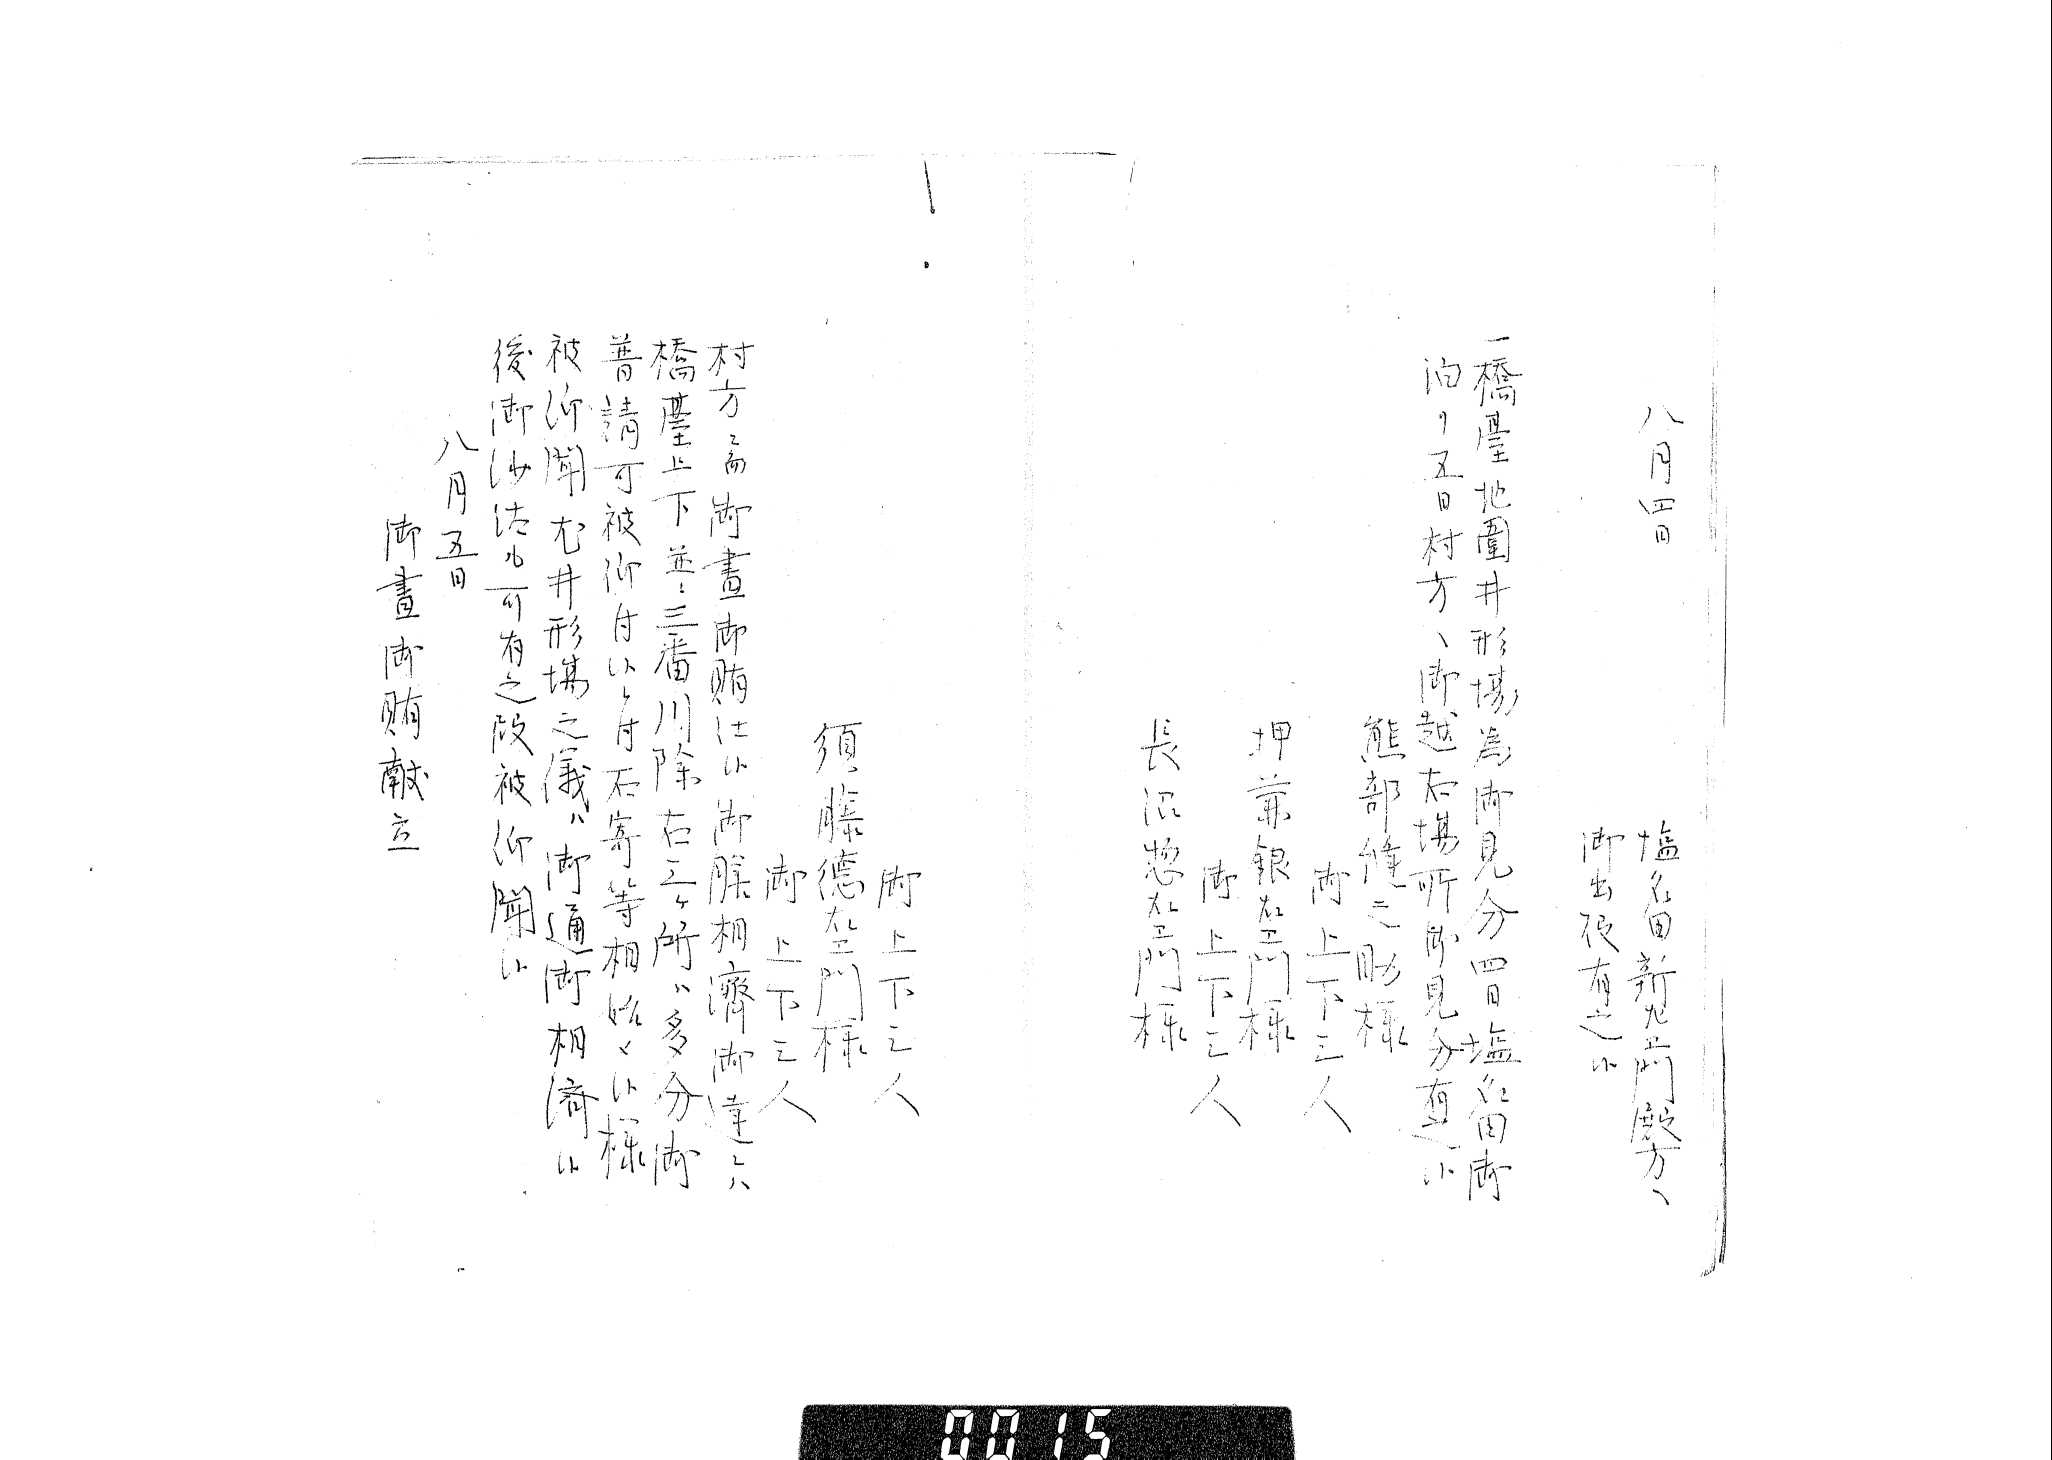 八月四日
塩名田新左エ門殿方へ
御出役有之候
一橋臺地圍井形場為御見分四日塩名田御
泊り五日村方へ御越右場所御見分有之候
熊部縫之助様
御上下三人
押兼銀左エ門様
御上下三人
長沼惣左エ門様
御上下三人
須藤德左エ門様
御上下三人
村方ニ而御晝御賄仕候御膳相濟御達ニハ
橋臺上下並ニ三番川除右三ヶ所ハ多分御
普請可被仰付候ニ付石寄等相始メ候様
被仰聞尤井形場之儀ハ御通御相濟候
後御沙汰も可有之段被仰聞候
八月五日
御晝御賄献立
0015